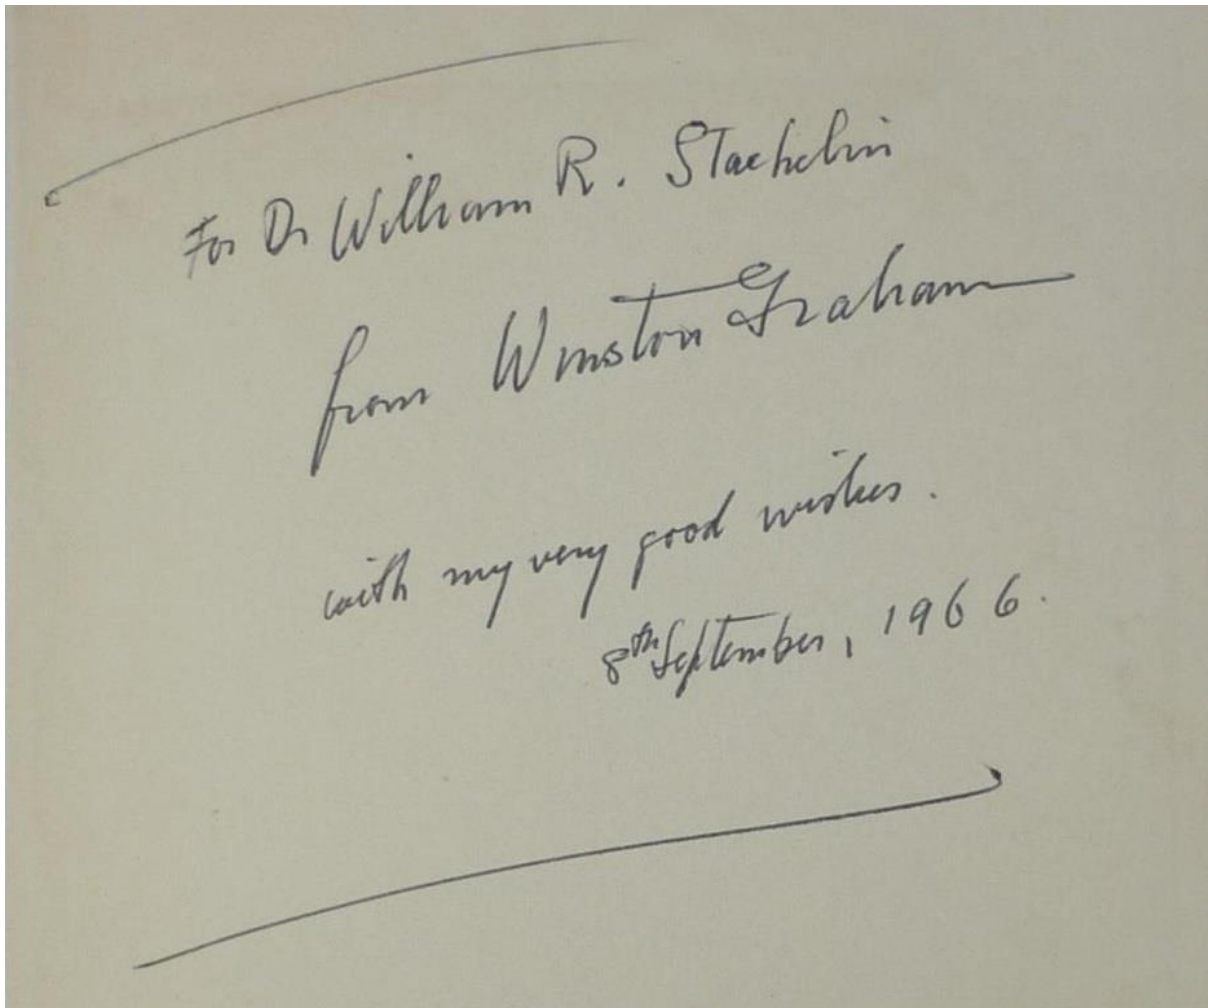 For Dr William R. Staehelin
from Winston Graham
with my very good wishes.
8th September, 1966.